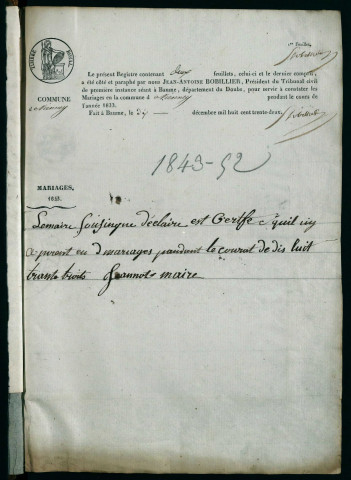 1er Feuillet,
TIMBRE ROYAL
Le présent Registre contenant deux feuillets, celui-ci et le dernier compris,
a été côté et paraphé par nous JEAN-ANTOINE BOBILLIER, Président du Tribunal civil
de première instance séant à Baume, département du Doubs, pour servir à constater les
COMMUNE
Mariages en la commune d pendant le cours de
l'année 1833.
Fait à Baume, le dix décembre mil huit cent trente-deux.
1843-52
MARIAGES,
1833.
Lemaire Sousigne déclaire est Certfe c quil ny
a poient eu d mariages pendant le courat de dis huit
trante troits Jeannot maire